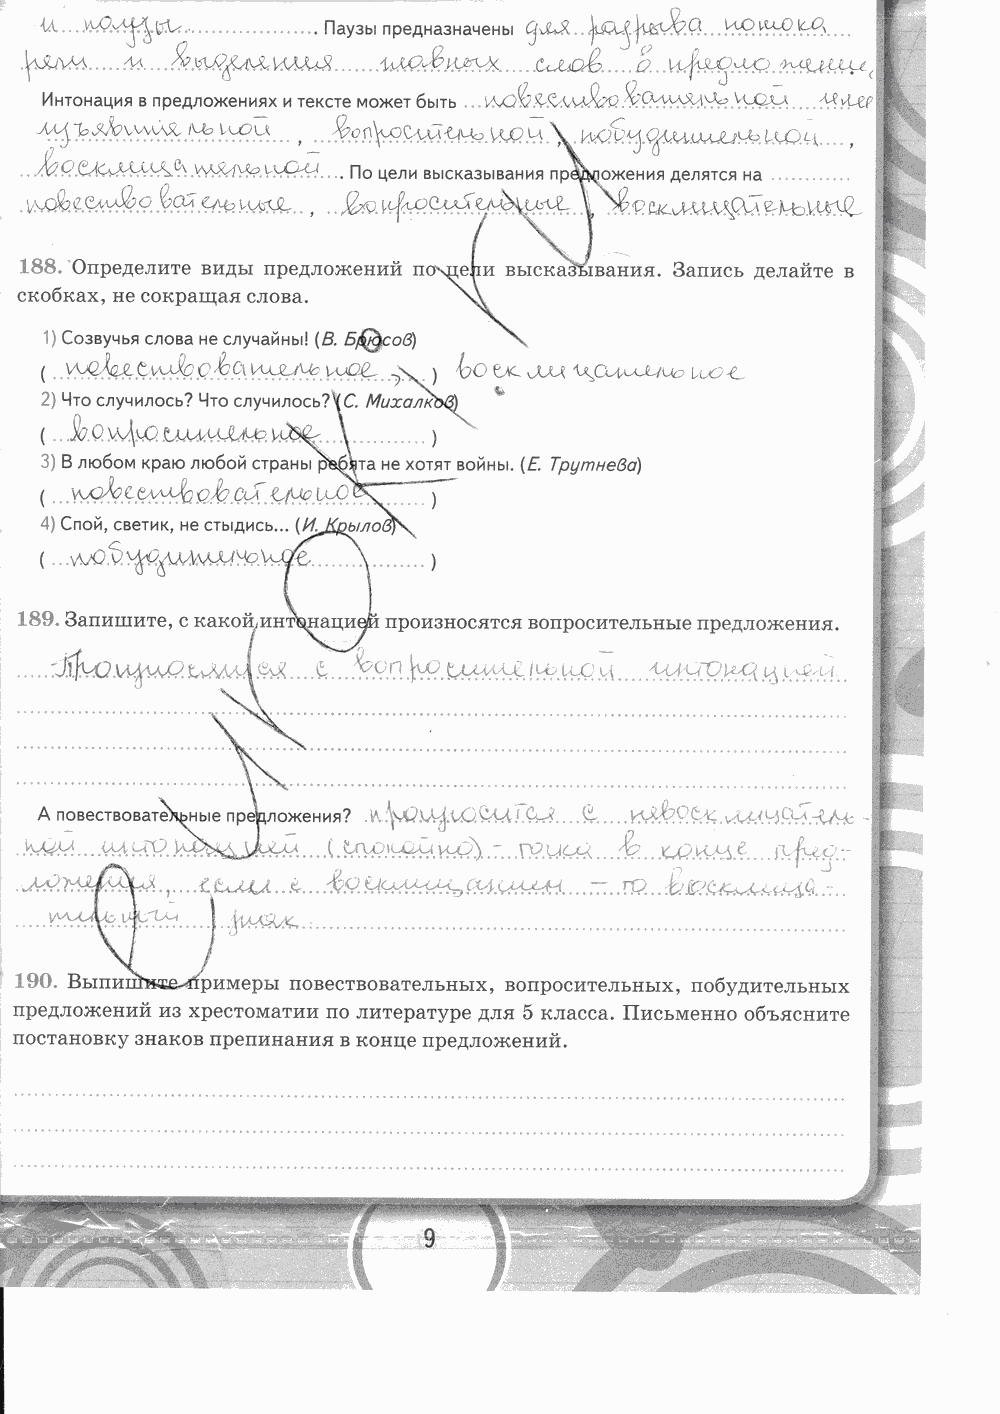 и паузы . Паузы предназначены для разрыва потока
речи и выделения главных слов в предложении,
Интонация в предложениях и тексте может быть повествовательной
изъявительной , вопросительной , побудительной ,
восклицательной . По цели высказывания предложения делятся на
повествовательные , вопросительные , восклицательные
188. Определите виды предложений по цели высказывания. Запись делайте в
скобках, не сокращая слова.
1) Созвучья слова не случайны! (В. Брюсов)
( повествовательное , ) восклицательное
2) Что случилось? Что случилось? (С. Михалков)
( вопросительное )
3) В любом краю любой страны ребята не хотят войны. (Е. Трутнева)
( повествовательное )
4) Спой, светик, не стыдись... (И. Крылов)
( побудительное )
189. Запишите, с какой интонацией произносятся вопросительные предложения.
Произносятся с вопросительной интонацией
А повествовательные предложения? произносится с невосклицатель-
ной интонацией (спокойно) - точка в конце пред-
ложения, если с восклицанием - то восклица-
тельный знак
190. Выпишите примеры повествовательных, вопросительных, побудительных
предложений из хрестоматии по литературе для 5 класса. Письменно объясните
постановку знаков препинания в конце предложений.
9